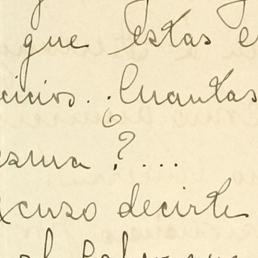 que estas e
cicios.. Cuantas
esma?...
xcuso decirte